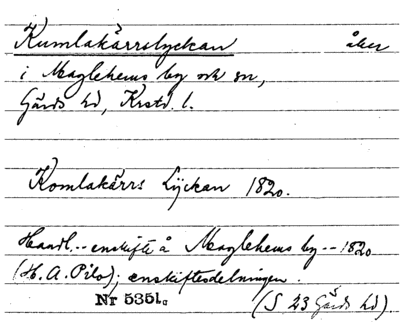 Kumlakärrslyckan åker
i Maglehems by och sn,
Gärds hd, Krstd. l.
Komlakärrs Lyckan 1820.
Handl. -- enskifte å Maglehems by -- 1820
(H. A. Pilo); enskiftesdelningen.
Nr 5351a
(S 23 Gärds hd)